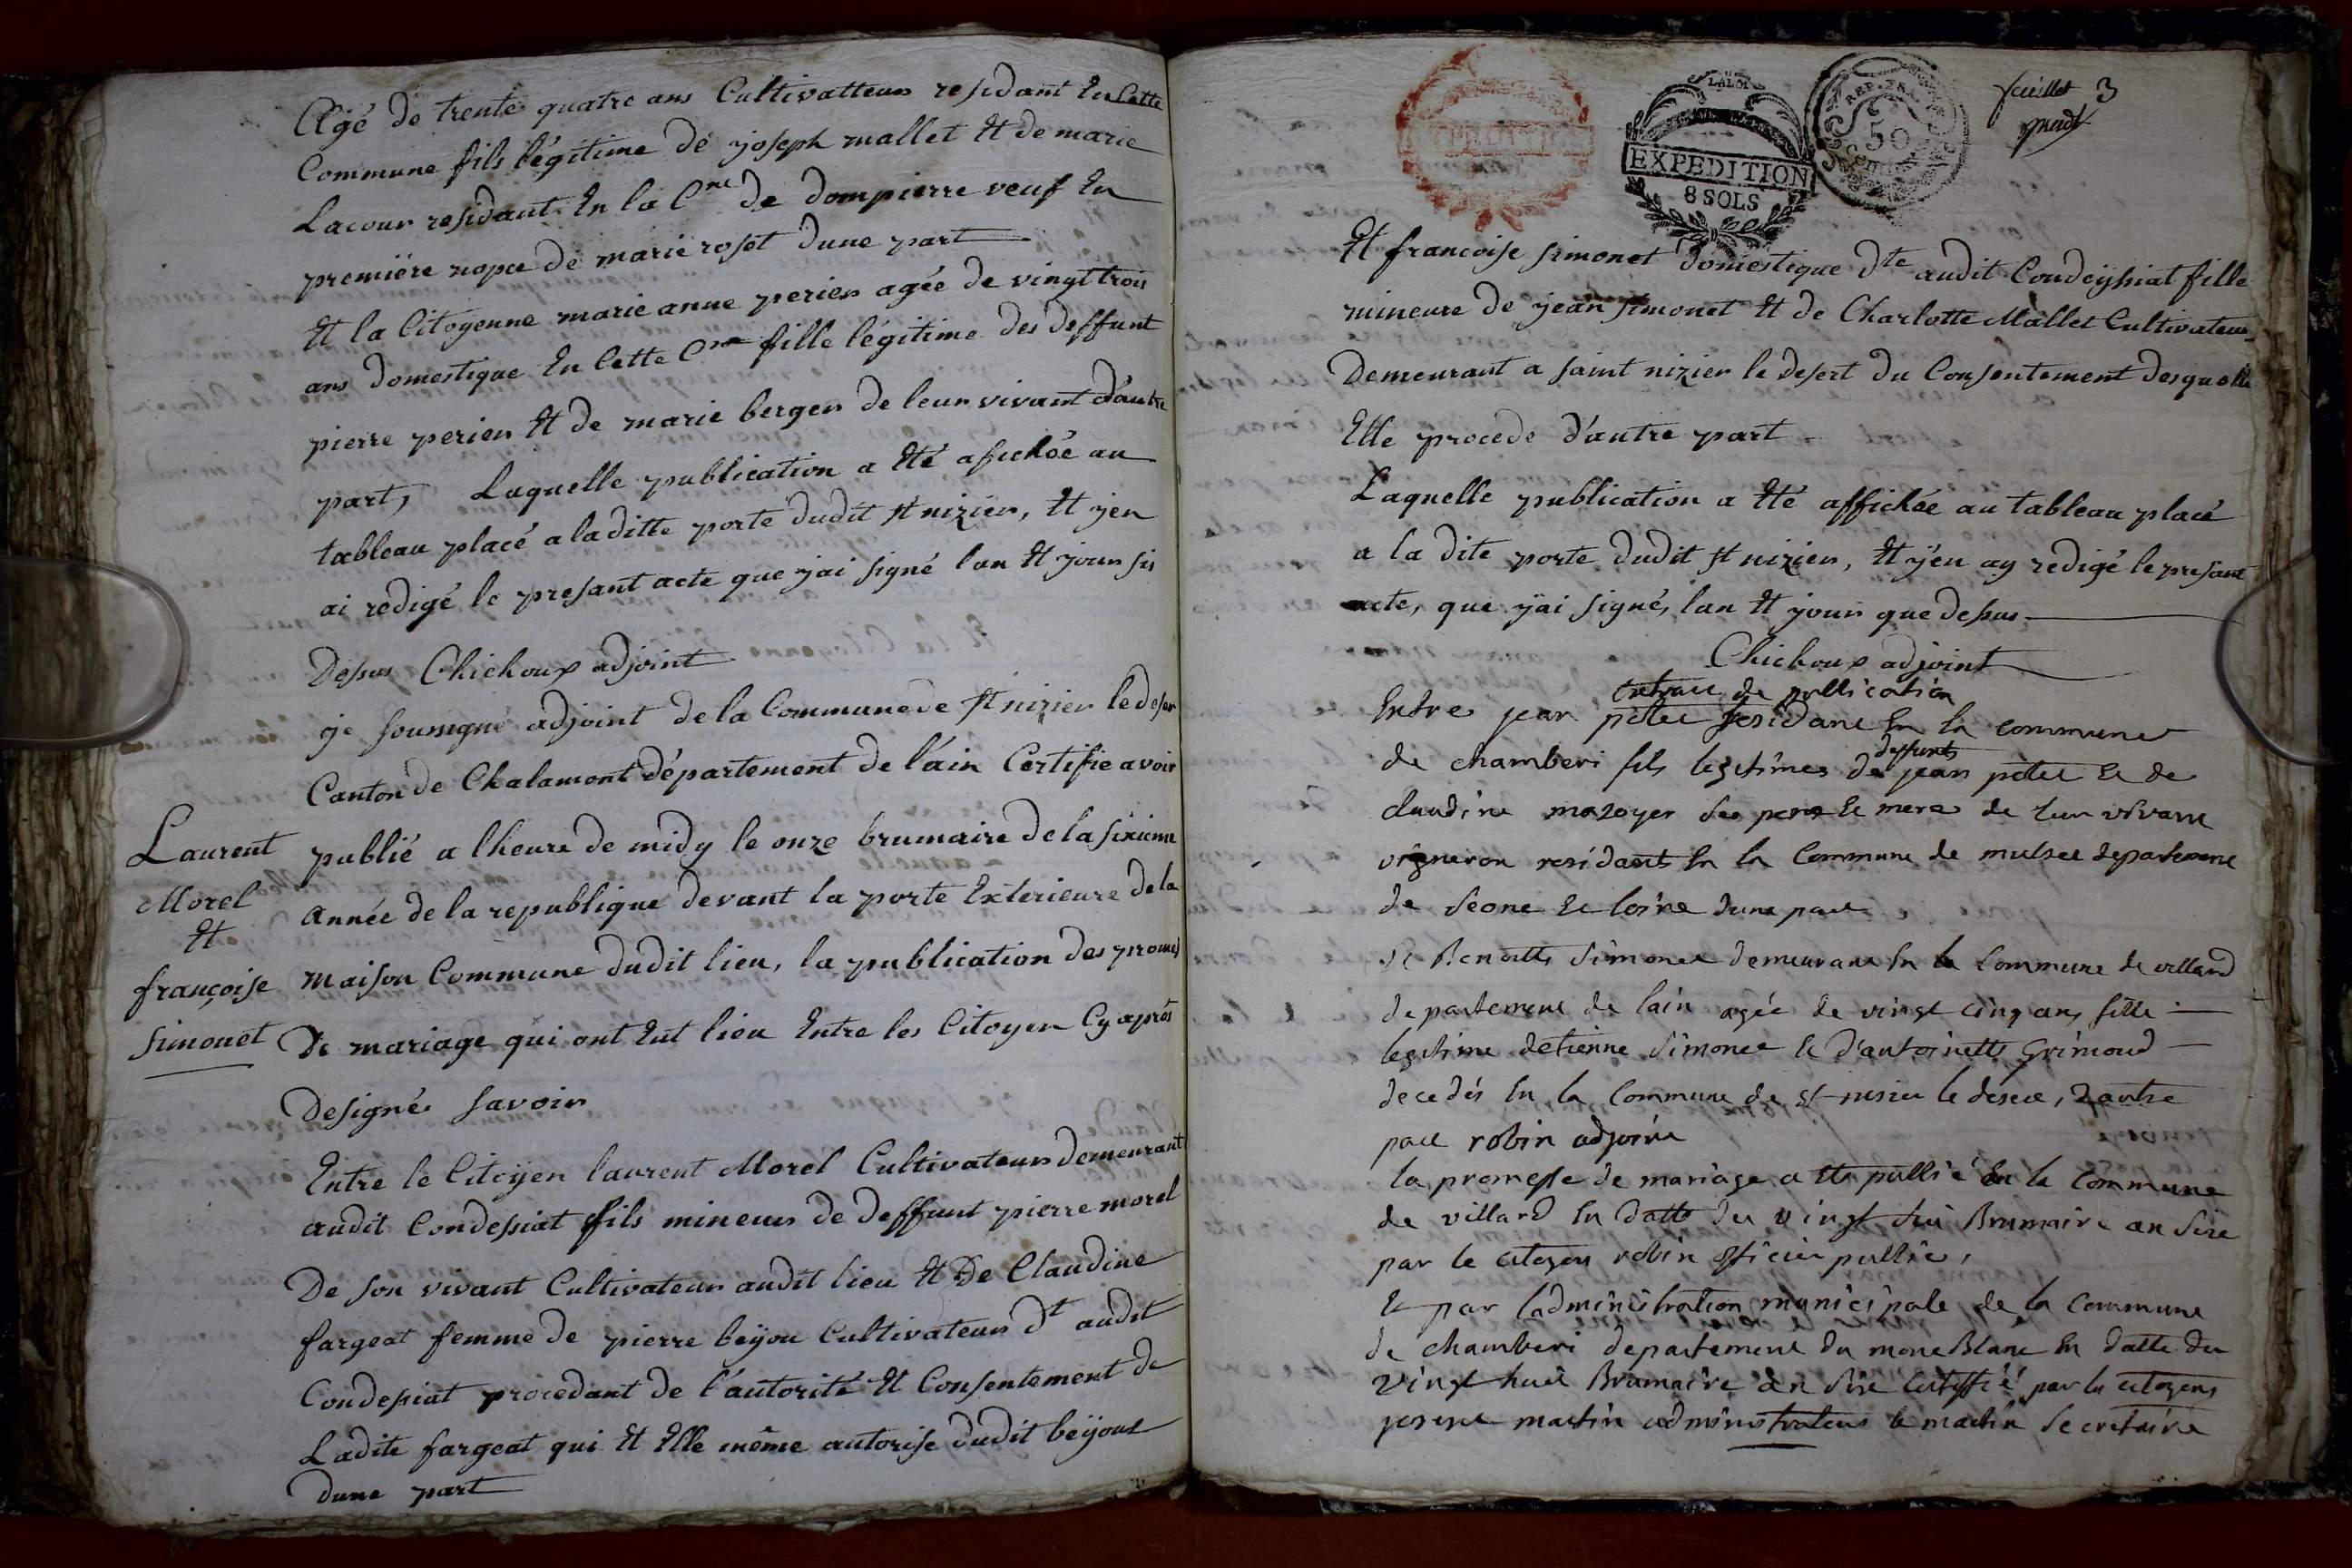 Agé de trente quatre ans Cultivatteur residant En Cette
Commune fils légitime de joseph mallet Et de marie
Lacour residant En la Cne de dompierre veuf En
premiére nopce de marie roset dune part
Et la Citoyenne marie anne perier agée de vingt trois
ans domestique En Cette Cne fille légitime des deffunt
pierre perier Et de marie berger de leur vivant d'autre
part, Laquelle publication a Eté afichée au
tableau placé a laditte porte dudit st nizier, Et j'en
ai redigé le presant acte que j'ai signé l'an Et jour sis
Desus Chichoux adjoint
je sousigné adjoint de la Commune de st nizier le deser
Canton de Chalamont département de l'ain Certifie avoir
publié a lheure de midy le onze brumaire de la sixieme
Année de la republique devant la porte Exterieure de la
maison Commune dudit lieu, la publication des promes
De mariage qui ont Eut lieu Entre les Citoyen Cy aprés
Designé savoir
Laurent
Morel
Et
françoise
simonet
Entre le Citoyen laurent Morel Cultivateur demeurant
audit Condessiat fils mineur de deffunt pierre morel
De son vivant Cultivateur audit lieu Et De Claudine
fargeat femme de pierre beijou Cultivateur Dt audit
Condesiat procedant de l'autorité Et Consentement de
Ladite fargeat qui Et Elle même autorise dudit beijout
dune part
EXPEDITION
LA LOI
EXPEDITION
8 SOLS
REP. FRA.
50
feuillet 3
Et francoise simonet domestique dte audit Condeyssiat fille
mineure de jean simonet Et de Charlotte Mallet Cultivateur
Demeurant a saint nizier le desert du Consentement desquelle
Elle procede d'autre part
Laquelle publication a Eté affichée au tableau placé
a la dite porte dudit st nizier, Et j'en ay redigé le presant
acte, que j'ai signé, lan Et jour que desus
Chichoux adjoint
extrait de publication
Entre jean petet residant En la commune
de chamberi fils legitimes de deffunts jean petet Et de
claudine mazoyer ses pere Et mere de leur vivant
vigneron residants En la Commune de departement
de seone Et loire dune part
Et Benoitte simonet demeurant En la Commune de villard
departement de lain agée de vingt cinq ans fille
legitime detienne simonet Et d'antoinette Grimoud
decedés En la Commune de st nisier le desert, dautre
part robin adjoint
la promesse de mariage a Ete publié En la Commune
de villard En datte du vingt huit Brumaire an sixe
par le citoyen robin officier public,
Et par ladministration municipale de la commune
de chamberi departement du mont Blanc En datte du
vingt huit Brumaire an sixe certiffié par les citoyens
martin administrateur Et martin secretaire